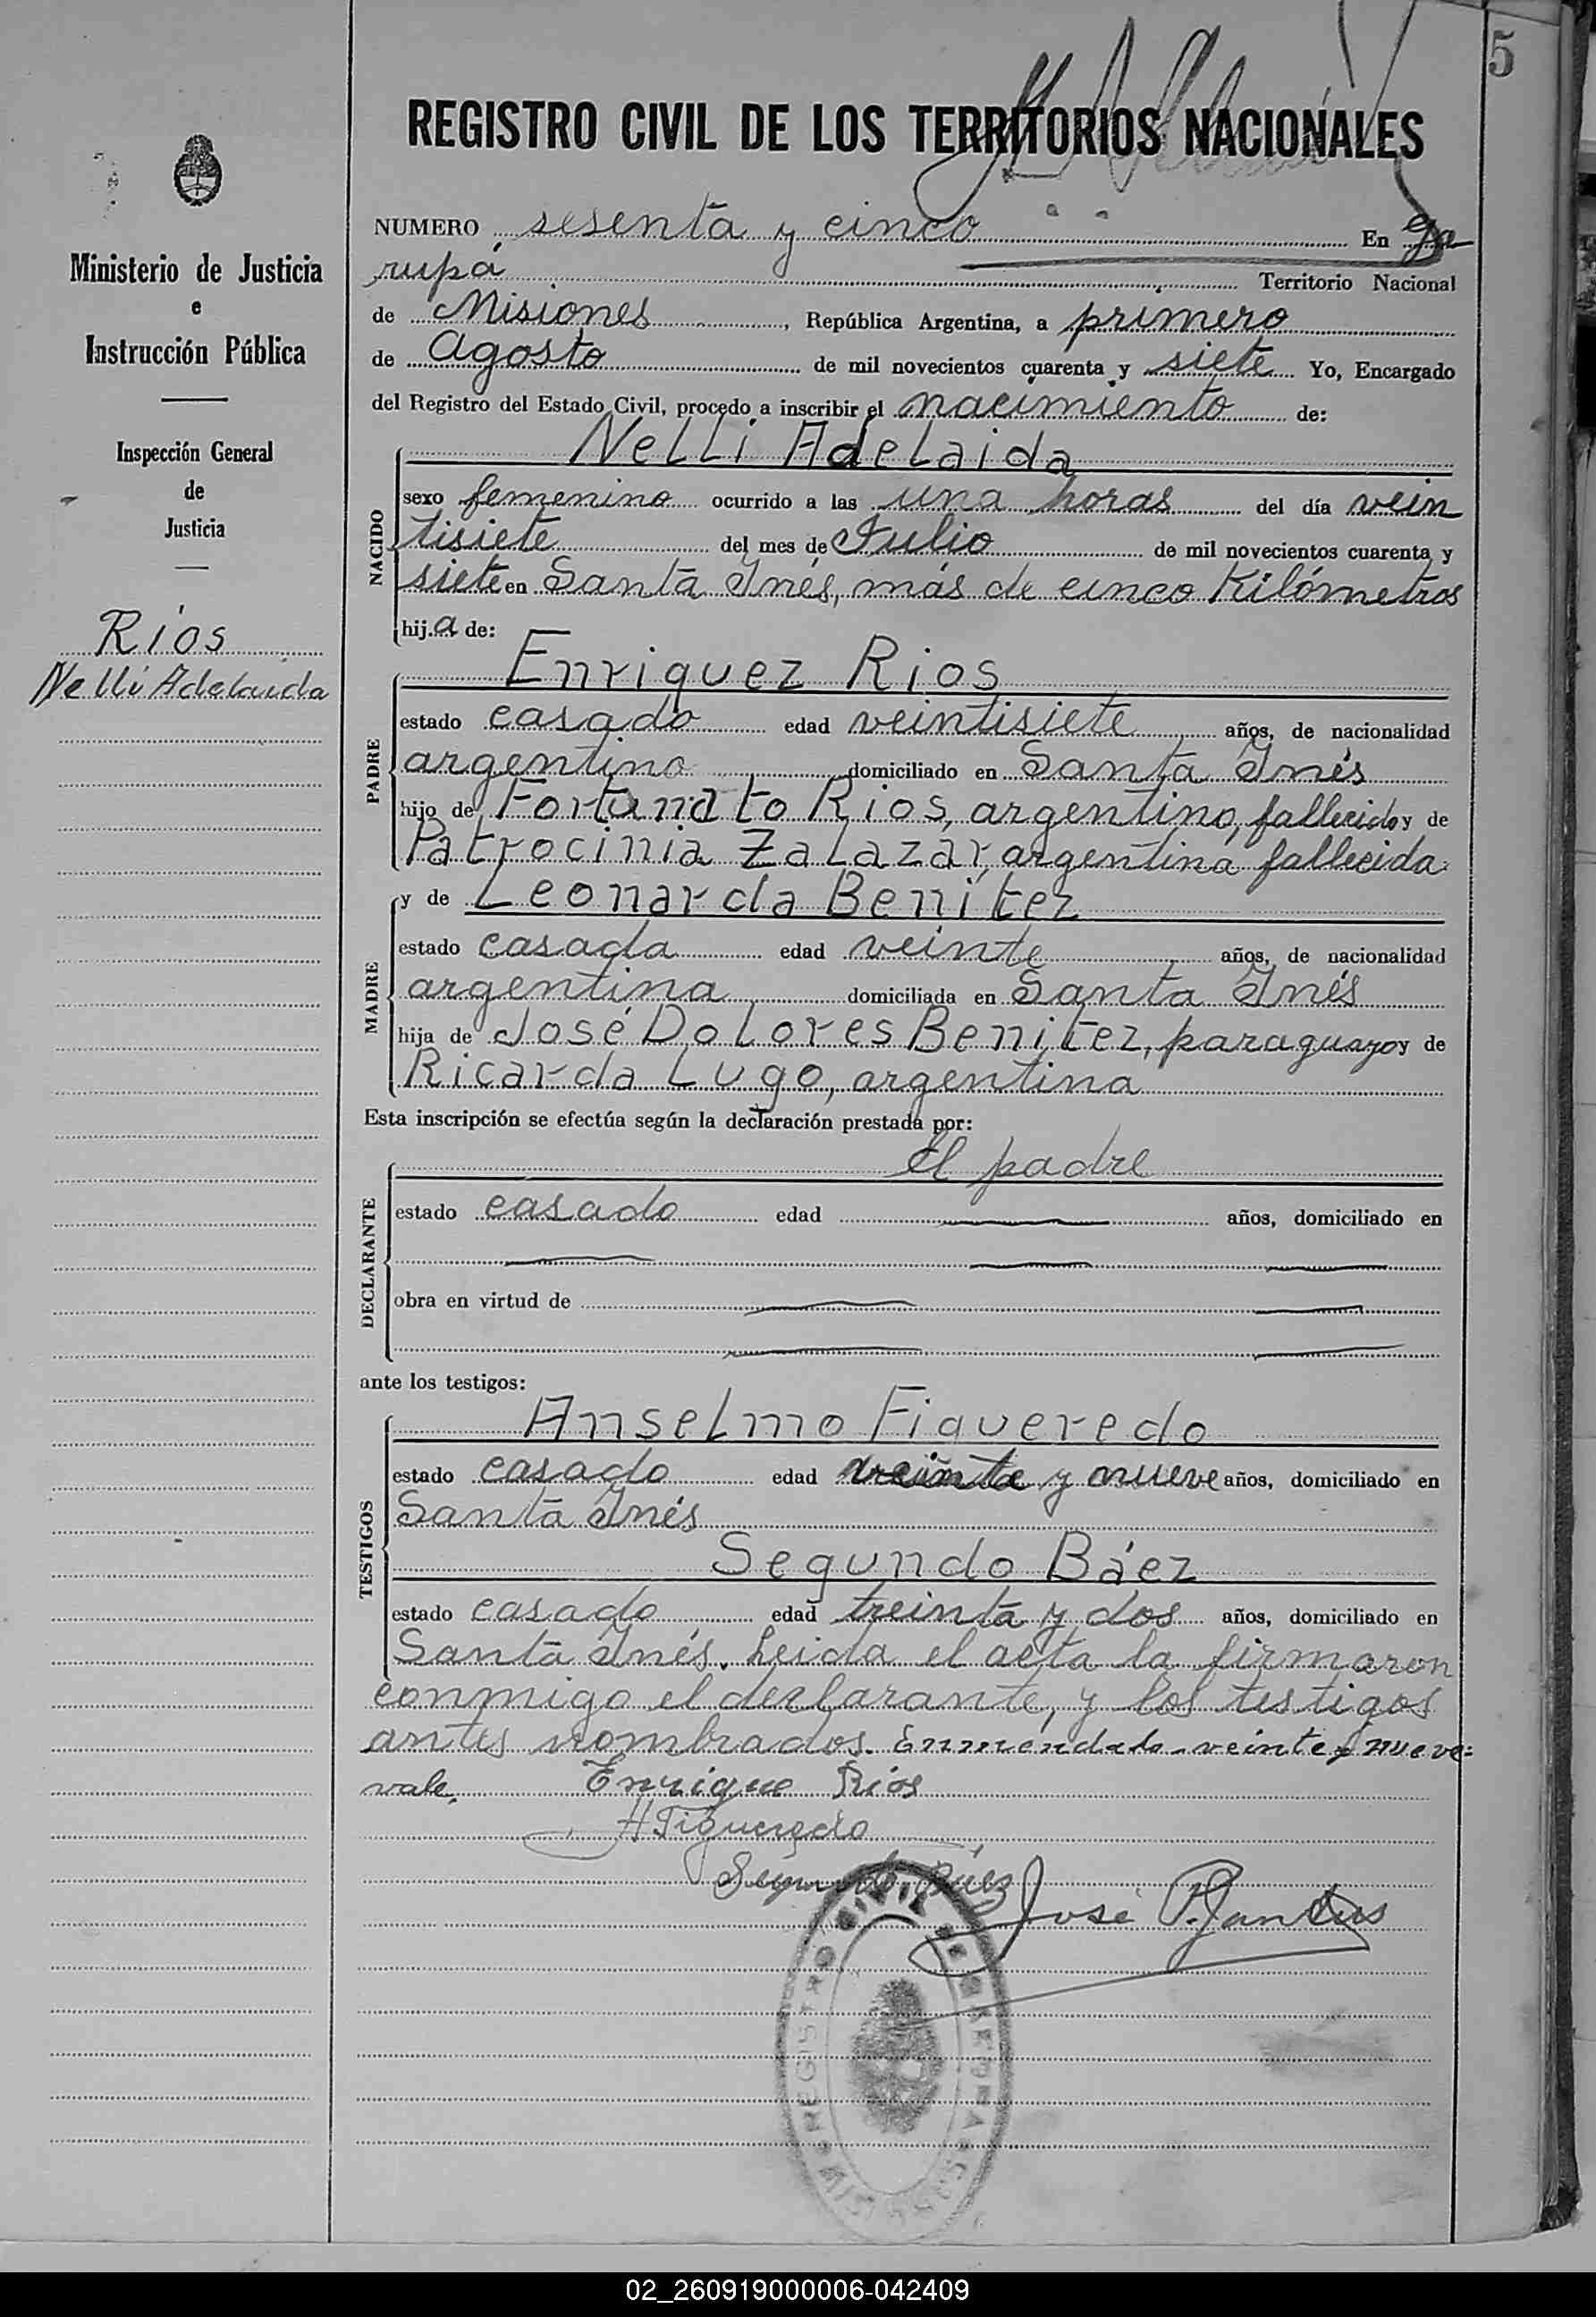 5
REGISTRO CIVIL DE LOS TERRITORIOS NACIONALES
NUMERO sesenta y cinco En Ga
rupá Territorio Nacional
de Misiones, República Argentina, a primero
de Agosto de mil novecientos cuarenta y siete Yo, Encargado
del Registro del Estado Civil, procedo a inscribir el nacimiento de:
Ministerio de Justicia
e
Instrucción Pública
Inspección General
de
Justicia
Ríos
Nelli Adelaida
NACIDO
Nelli Adelaida
sexo femenino ocurrido a las una horas del día vein
tisiete del mes de Julio de mil novecientos cuarenta y
siete en Santa Inés, más de cinco Kilómetros
hija de:
PADRE
Enriquez Rios
estado casado edad veintisiete años, de nacionalidad
argentino domiciliado en Santa Inés
hijo de Fortunato Rios, argentino, fallecido y de
Patrocinia Zalazar, argentina fallecida
MADRE
y de Leonarda Benitez
estado casada edad veinte años, de nacionalidad
argentina domiciliada en Santa Inés
hija de José Dolores Benitez, paraguayo y de
Ricarda Lugo, argentina
Esta inscripción se efectúa según la declaración prestada por:
DECLARANTE
el padre
estado casado edad años, domiciliado en
obra en virtud de
ante los testigos:
TESTIGOS
Anselmo Figueredo
estado casado edad veinte y nueve años, domiciliado en
Santa Inés
Segundo Báez
estado casado edad treinta y dos años, domiciliado en
Santa Inés. Leida el acta la firmaron
conmigo el declarante, y los testigos
antes nombrados. Enmendado - veinte y nueve:
vale.
Enrique Rios
A Figueredo
Segundo Báez
José P.
REGISTRO CIVIL DE
02_260919000006-042409